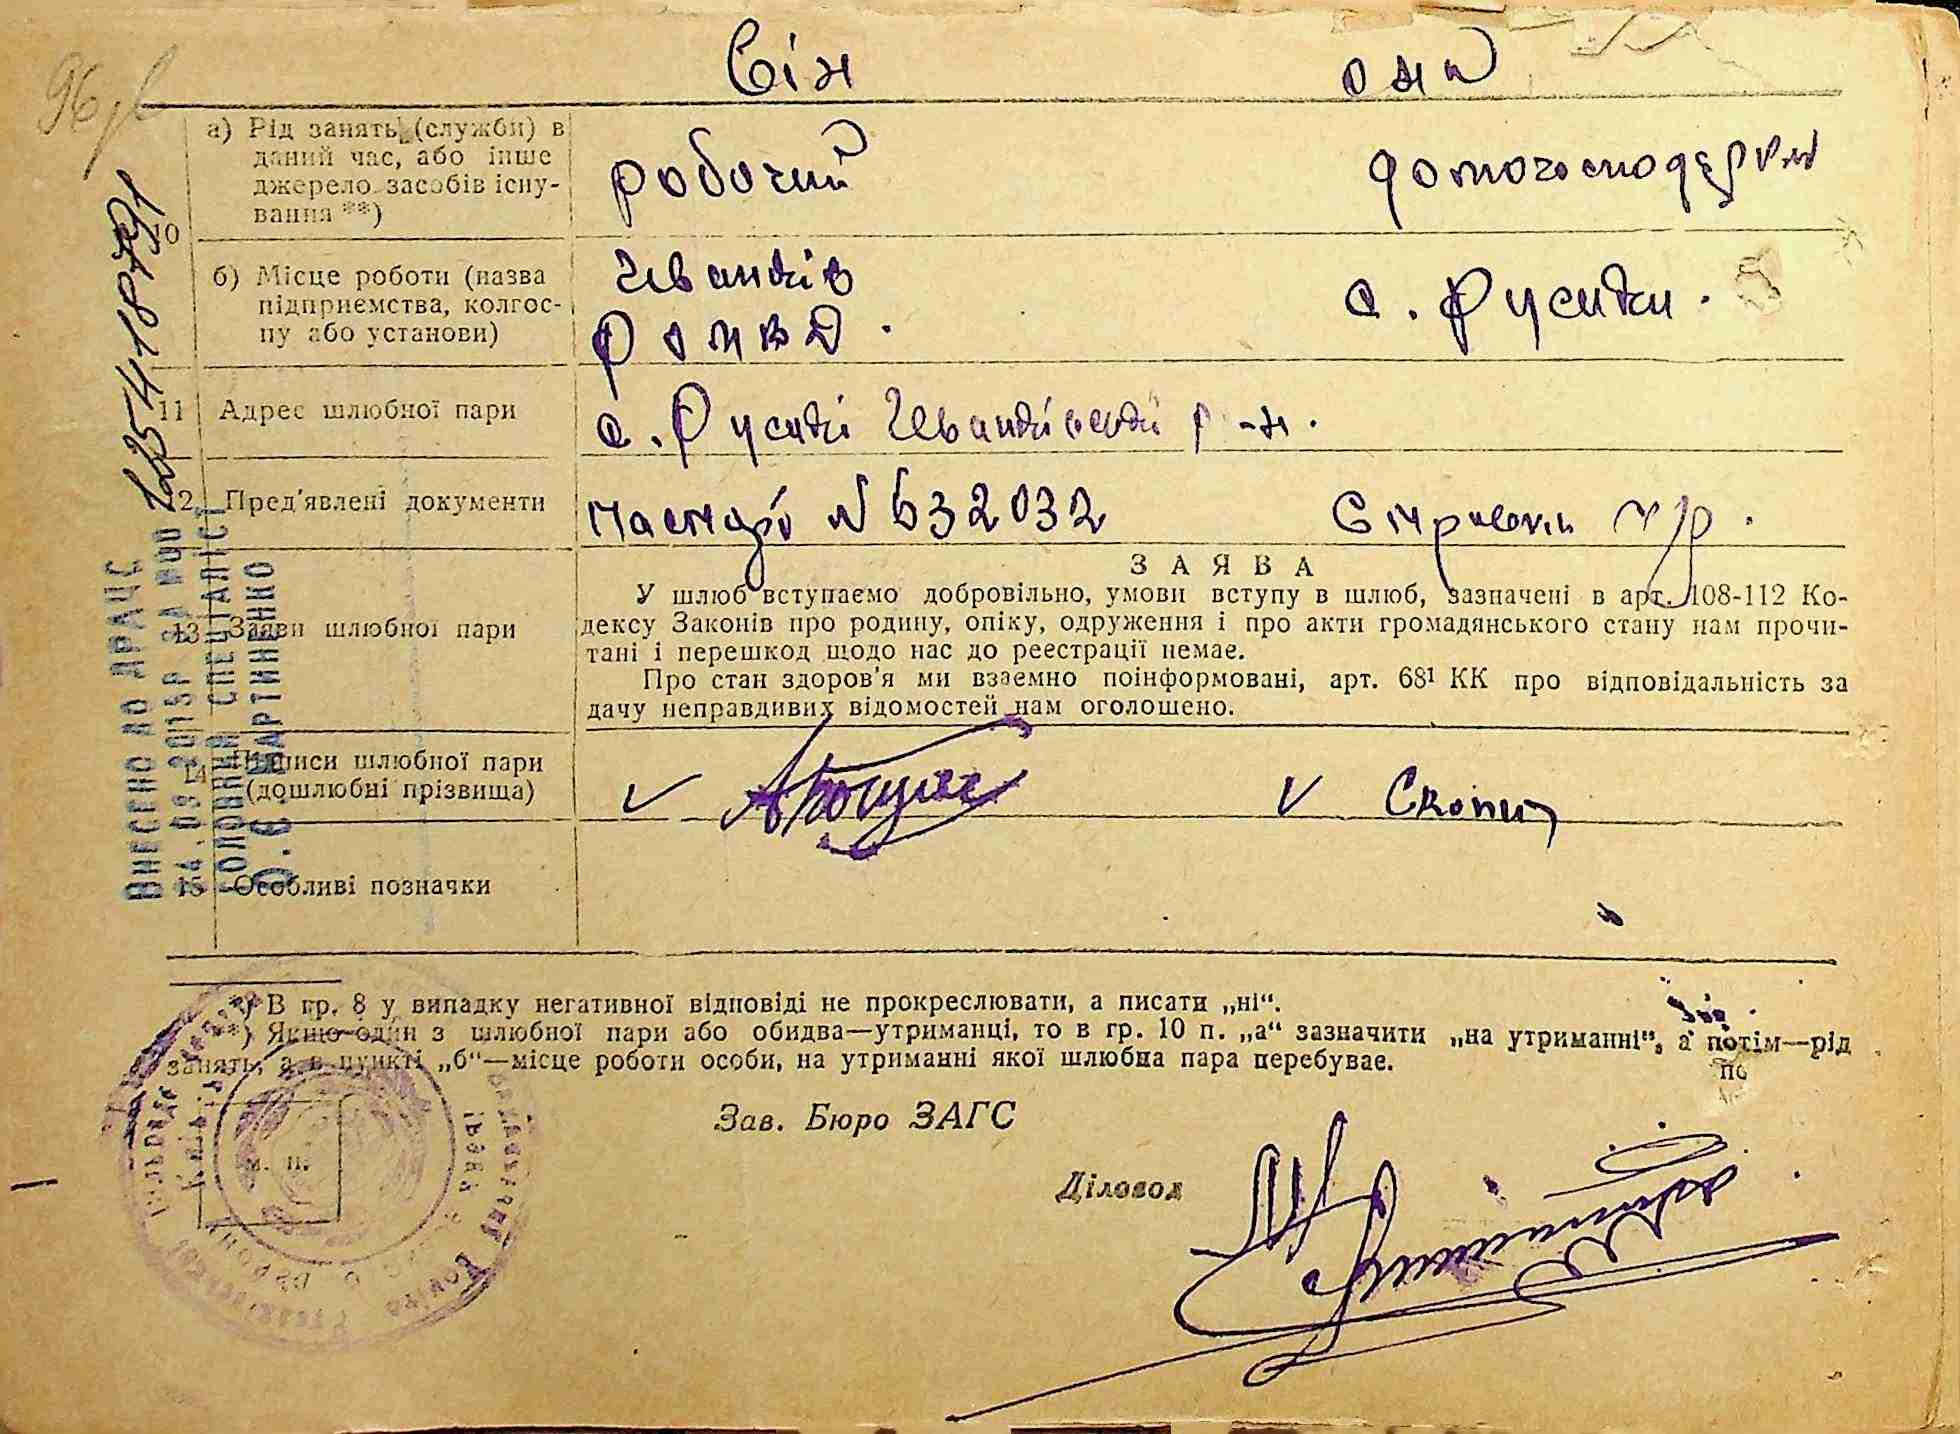 96
Він она
а) Рід занять (служби) в
даний час, або інше
джерело засобів існу-
вання **)
робочий
10
б) Місце роботи (назва
підприємства, колгос-
пу або установи)
Іванків
с. Русаки.
11 Адрес шлюбної пари
с. Русакі р-н.
12 Пред'явлені документи
паспорт N 632032
13 Заяви шлюбної пари
ЗАЯВА
У шлюб вступаємо добровільно, умови вступу в шлюб, зазначені в арт. 108-112 Ко-
дексу Законів про родину, опіку, одруження і про акти громадянського стану нам прочи-
тані і перешкод щодо нас до реєстрації немає.
Про стан здоров'я ми взаємно поінформовані, арт. 68¹ КК про відповідальність за
дачу неправдивих відомостей нам оголошено.
14 Підписи шлюбної пари
(дошлюбні прізвища)
V V Скопич
15 Особливі позначки
*) В гр. 8 у випадку негативної відповіді не прокреслювати, а писати „ні“.
**) Якщо один з шлюбної пари або обидва—утриманці, то в гр. 10 п. „а“ зазначити „на утриманні“, а потім—рід
занять, а в пункті „б“—місце роботи особи, на утриманні якої шлюбна пара перебуває.
Зав. Бюро ЗАГС
Діловод
м. п.
ВНЕСЕНО ДО ДРАЦС
ГОЛОВНИЙ СПЕЦІАЛІСТ
О.Є МАРТИНЕНКО